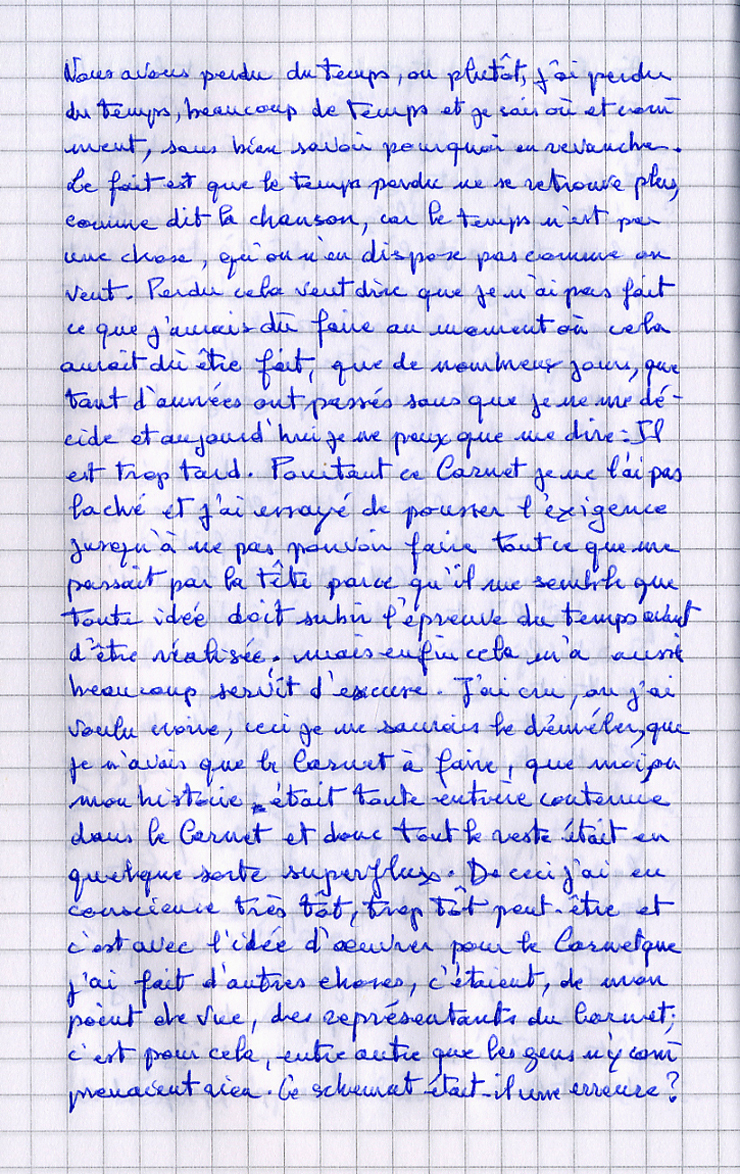 Nous avons perdu du temps, ou plutôt, j'ai perdu
du temps, beaucoup de temps et je sais où et com
ment, sans bien savoir pourquoi en revanche.
Le fait est que le temps perdu ne se retrouve plus,
comme dit la chanson, car le temps n'est pas
une chose, qu'on n'en dispose pas comme on
veut. Perdu cela veut dire que je n'ai pas fait
ce que j'aurais dû faire au moment où cela
aurait dû être fait, que de nombreux jours, que
tant d'années ont passés sans que je ne me dé-
cide et aujourd'hui je ne peux que me dire : Il
est trop tard. Pourtant ce Carnet je ne l'ai pas
laché et j'ai essayé de pousser l'exigence
jusqu'à ne pas pouvoir faire tout ce que me
passait par la tête parce qu'il me semble que
toute idée doit subir l'épreuve du temps avant
d'être réalisée; mais enfin cela m'a aussi
beaucoup servit d'excuse. J'ai cru, ou j'ai
voulu croire, ceci je ne saurais le démêler, que
je n'avais que le Carnet à faire, que moi, ou
mon histoire était toute entière contenue
dans le Carnet et donc tout le reste était en
quelque sorte superflux. De ceci j'ai eu
conscience très tôt, trop tôt peut-être et
c'est avec l'idée d'œuvrer pour le Carnet que
j'ai fait d'autres choses, c'étaient, de mon
point de vue, des représentants du Carnet;
c'est pour cela, entre autre que les gens n'y com
prenaient rien. Ce schemat était-il une erreure ?